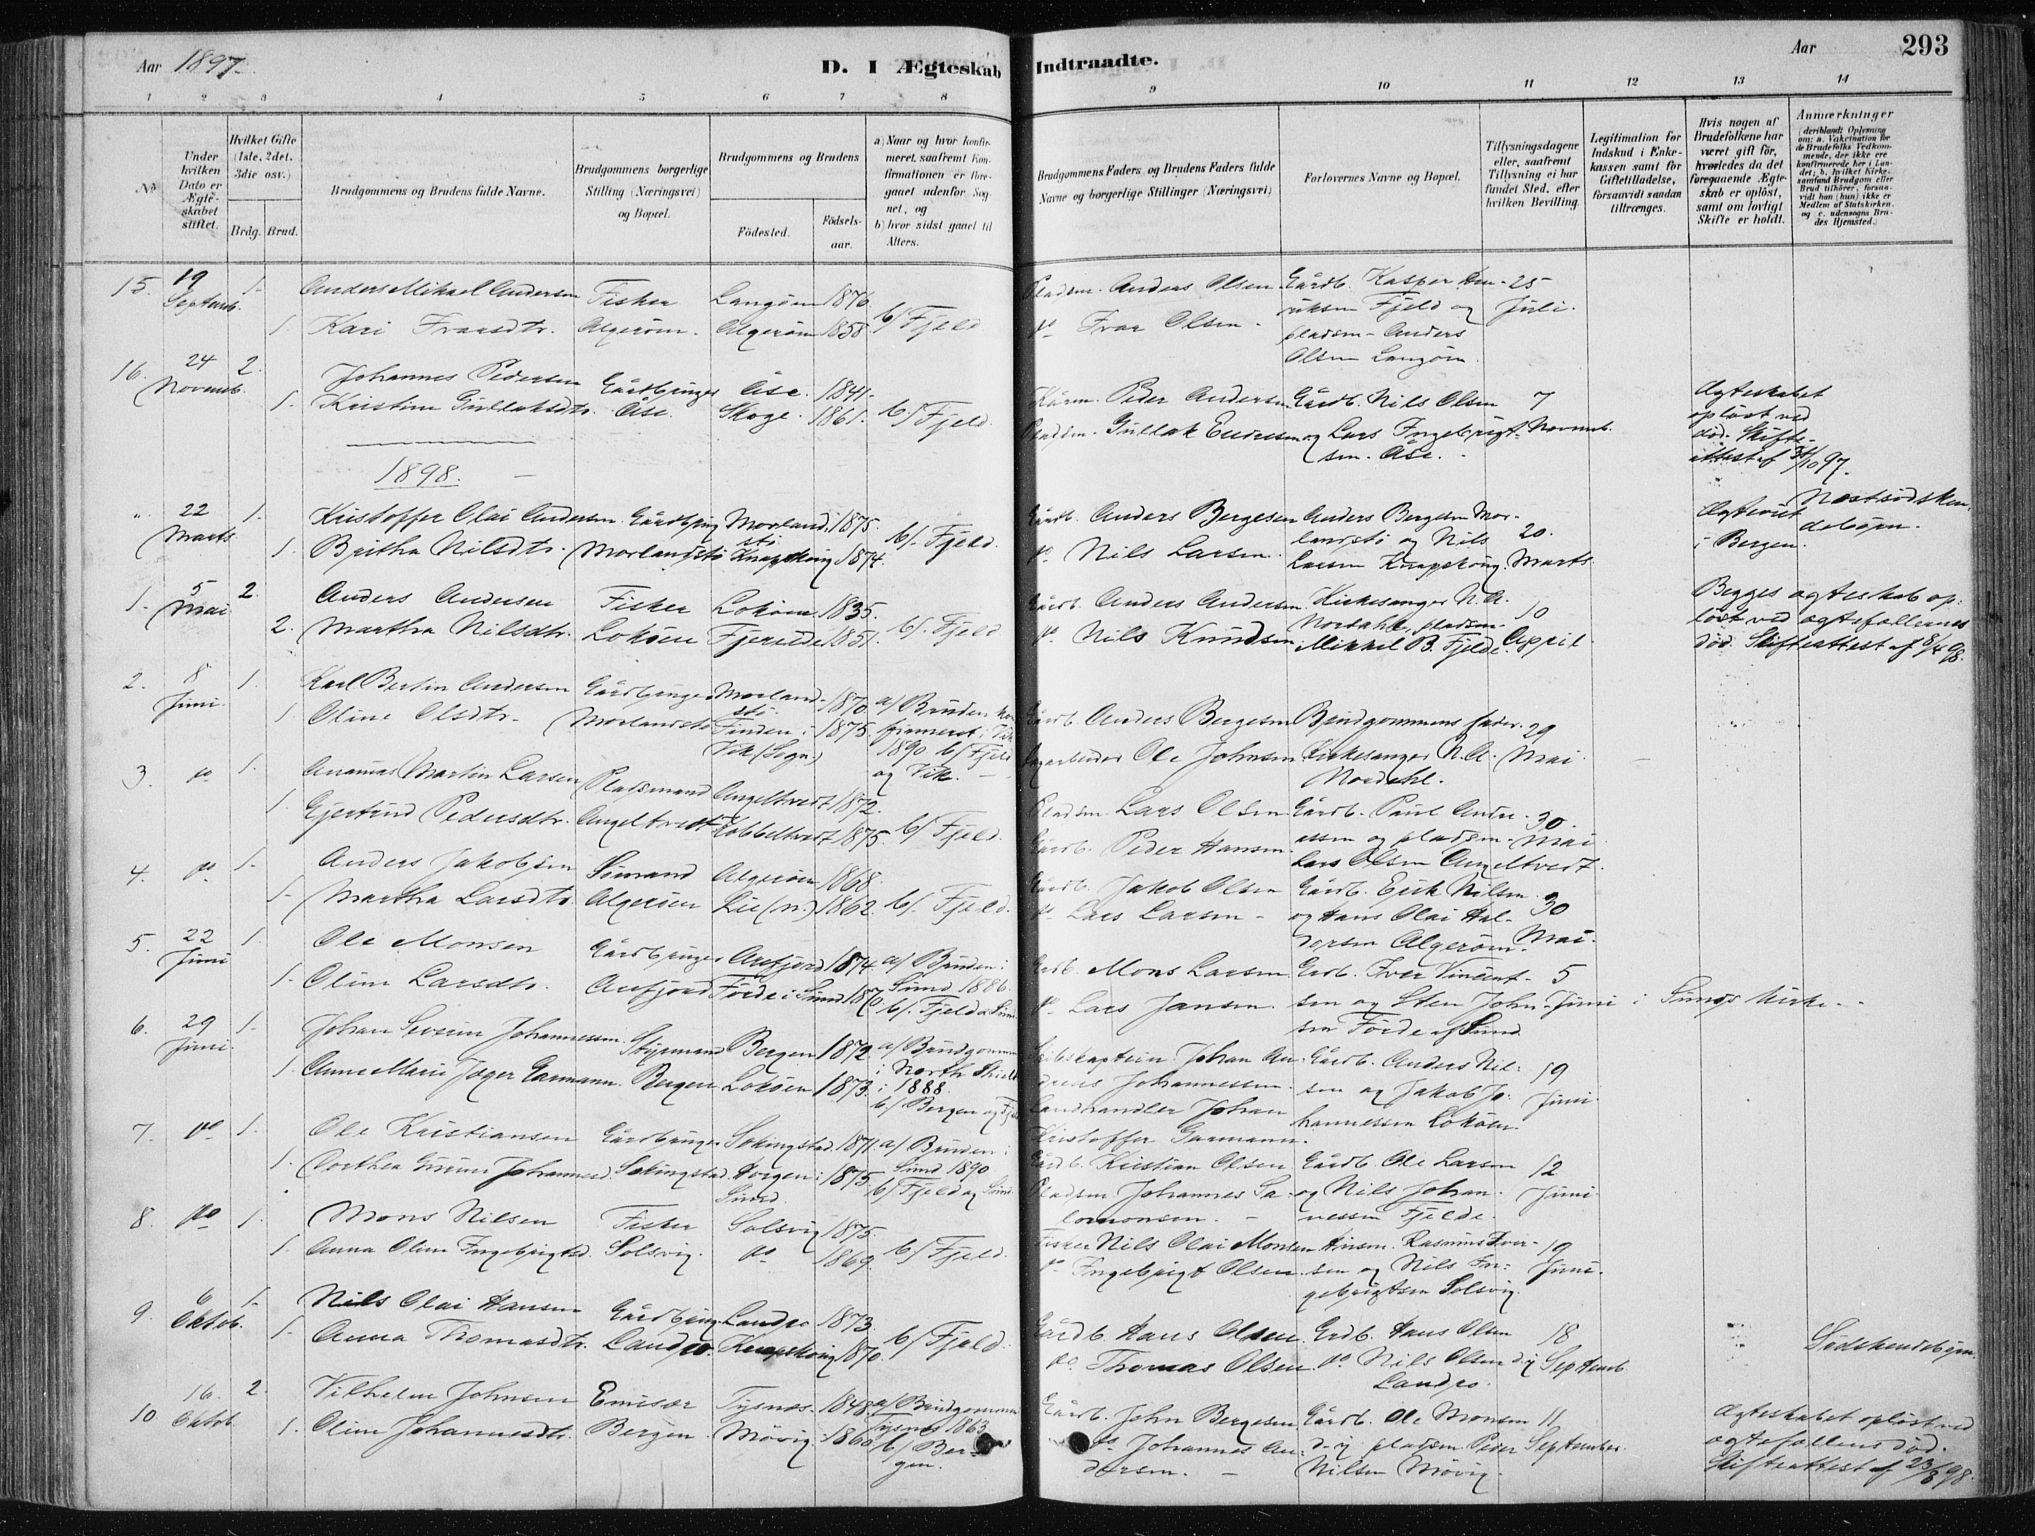 Aar 1897.
D. I Ægteskab Indtraadte.
Aar 293
1 2 3 4 5 6 7 8 9 10 11 12 13 14
No
Under hvilken Dato er Ægteskabet stiftet.
Hvilket Gifte (1ste, 2det, 3die osv.)
Brdg. Brud.
Brudgommens og Brudens fulde Navne.
Brudgommens borgerlige Stilling (Næringsvei) og Bopæl.
Brudgommens og Brudens
Fødested. Fødselsaar.
a) Naar og hvor konfirmeret, saafremt Konfirmationen er foregaaet udenfor Sognet, og
b) hvor sidst gaaet til Alters.
Brudgommens Faders og Brudens Faders fulde Navne og borgerlige Stillinger (Næringsvei)
Forlovernes Navne og Bopæl.
Tillysningsdagene eller, saafremt Tillysning ei har fundet Sted, efter hvilken Bevilling.
Legitimation for Indskud i Enkekassen samt for Giftetilladelse, forsaavidt saadan tiltrænges.
Hvis nogen af Brudefolkene har været gift før, hvorledes da det foregaaende Ægteskab er opløst, samt om lovligt Skifte er holdt.
Anmærkninger
15. 19 Septemb. 1. Anders Mikael Andersen Fisker Langøen 1876 b/ Fjeld
1. Kari Ivarsdtr. Algerøen. Algerøen 1858
Pladsm. Anders Olsen Gårdb. Kasper Henriksen Fjeld og pladsm. Anders Olsen Langøen. 25 Juli.
do Ivar Olsen.
16. 24 Novemb. 2. Johannes Pedersen Gårdbruger Åse. 1841.
1. Kristine Gullaksdtr. Åse. Skoge. 1861. b/ Fjeld.
Peder Andersen Gårdb. Nils Olsen 7
Pladsm. Gullak Endresen og Lars Ingebrigtsen. Åse. Novemb.
Ægteskabet opløst ved død. Skifteattest af 30/10 97.
1898.
" 22 Marts 1. Kristoffer Olai Andersen. Gårdbrug Morlandstø 1875.
1. Britha Nilsdtr. Morlandstø Knapskog 1874. b/. Fjeld
Gårdb. Anders Bergesen Anders Bergesen Morlandstø og Nils Larsen Knapskog. 20. Marts
do Nils Larsen.
Ægteviet i Bergen. Næstsødskendebørn.
1. 5 Mai 2. Anders Andersen Fisker Lokøen 1835.
2. Martha Nilsdtr. Lokøen Fjereide 1851. b/. Fjeld
Gårdb. Anders Andersen Kirkesanger N.A. Nordahl, pladsm. Mikkel B. Fjelde. 10 April
do Nils Knudsen
Begges ægteskab opløst ved ægtefællernes død. Skifteattest af 8/4 98.
2. 8 Juni. 1. Karl Bertin Andersen Gårdbruger Morlandstø 1870. a/ Bruden konfirmeret i Vik 1890. b/ Fjeld og Vik.
1. Oline Olsdtr. Morlandstø Finden i Vik (Sogn) 1875.
Gårdb. Anders Bergesen Brudgommens fader. 29
Ole Johnsen Kirkesanger N.A. Nordahl. Mai
3 do 1. Ananias Martin Larsen Pladsmand Angeltvedt 1872.
1. Gjertrud Pedersdtr. Angeltvedt Kobbeltvedt 1875. b/ Fjeld.
Pladsm. Lars Olsen Gårdb. Paul Andreassen og pladsm. Lars Olsen Angeltvedt. 30. Mai
Gårdb. Peder Hansen
4. do 1. Anders Jakobsen Sømand Algerøen 1868
1. Martha Larsdtr. Algerøen Lie (n.) 1862. b/. Fjeld.
Gårdb. Jakob Olsen Gårdb. Erik Nilsen og Hans Olai Haldorsen Algerøen. 30 Mai.
do Lars Larsen
5. 22 Juni 1. Ole Monsen Gårdbruger Arefjord 1874. a/ Bruden i Sund 1886.
1. Oline Larsdtr. Arefjord Førde i Sund 1870. b/. Fjeld o Sund
Grdb. Mons Larsen Grdb. Iver Vincentsen og Sten Johnsen Førde af Sund. 5 Juni i Sunds kirke.
do Lars Jansen
6. 29 Juni. 1. Johan Severin Johannessen Styrmand Bergen 1872. a/ Brudgommen i North Shields i 1888.
1. Anne Marie Jæger Garmann. Bergen Lokøen 1873. b/ Bergen og Fjeld
Skibskaptein Johan Andreas Johannessen. Gårdb. Anders Nilsen og Jakob Johannessen Lokøen. 19 Juni
Landhandler Johan Kristoffer Garmann.
7. do 1. Ole Kristiansen Gårdbruger Sekingstad 1871. a/ Bruden i Sund 1890
1. Dorthea Johannesd. Sekingstad Horgen i Sund. 1875. b/ Fjeld og Sund
Gårdb. Kristian Olsen Gårdb. Ole Larsen og Nils Johannessen Fjelde. 12 Juni.
Pladsm Johannes Salomonsen.
8. do 1. Mons Nilsen Fisker Solsvig 1875.
1. Anna Oline Ingebrigtsd. Solsvig. do 1869. b/ Fjeld.
Fisker Nils Olai Monsen Husm. Rasmus Iversen og Nils Ingebrigtsen Solsvig. 19 Juni.
do Ingebrigt Olsen.
9. 6 Oktob. 1. Nils Olai Hansen Gårdbrug Landro 1873.
1. Anna Thomasdtr. Landro. Knapskog 1870. b/ Fjeld.
Gårdb. Hans Olsen Grdb. Hans Olsen 18
do Thomas Olsen do Nils Olsen d.y Landro. Septemb.
Sødskendebørn.
10 16. Oktob. 2. Vilhelm Johnsen Emisær Tysnes. 1848. a/ Brudgommen Tysnes 1863
1. Oline Johannesdtr. Bergen. Møvig. 1860. b/ Bergen.
Gårdb. John Bergesen Gårdb. Ole Monsen d.y pladsm. Peder Nilsen Møvig. 11 September.
do Johannes Andersen.
Ægteskabet opløst ved ægtefællens død. Skifteattest af 23/8 98.